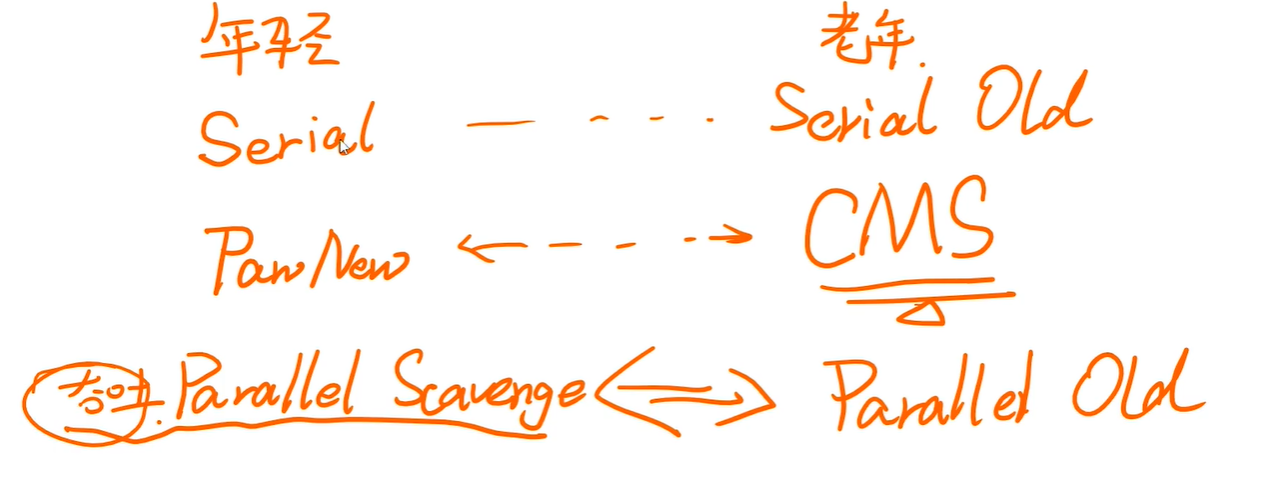 年轻 老年.
Serial Serial Old
ParNew CMS
吞吐. Parallel Scavenge Parallel Old